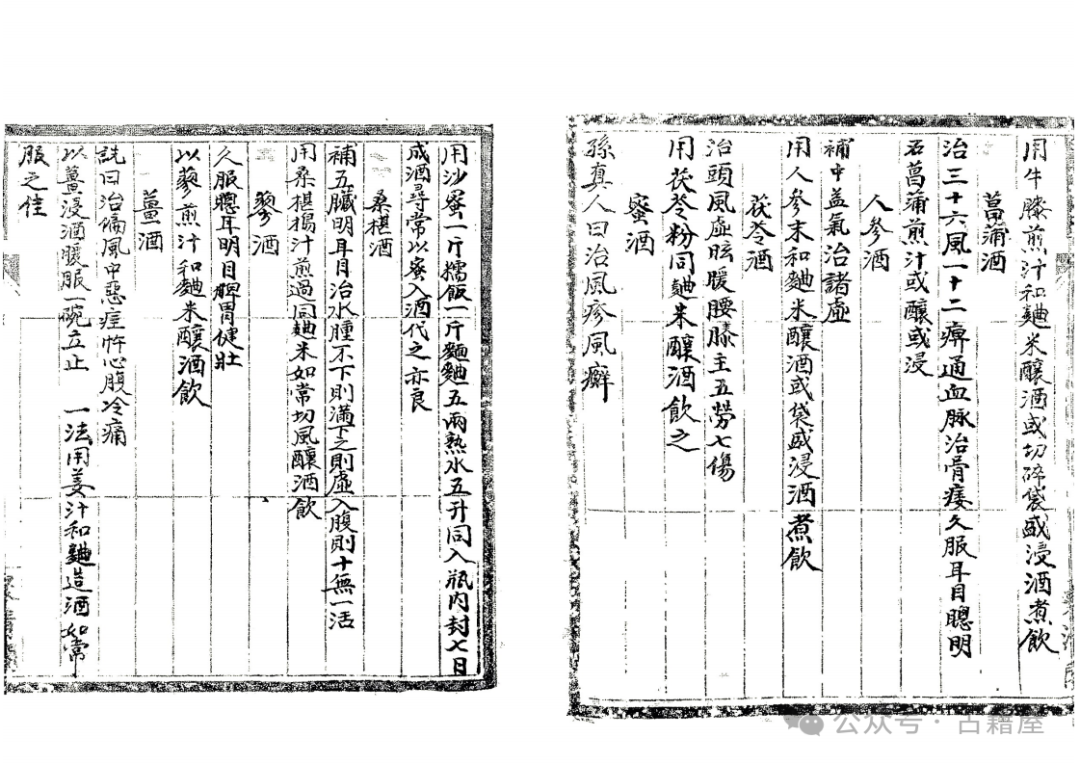 用牛膝煎汁和麯米釀酒或切碎袋盛浸酒煮飲
菖蒲酒
治三十六風一十二痹通血脉治骨痿久服耳目聰明
石菖蒲煎汁或釀或浸
人參酒
補中益氣治諸虛
用人參末和麯米釀酒或袋盛浸酒煮飲
茯苓酒
治頭風虛眩暖腰膝主五勞七傷
用茯苓粉同麯米釀酒飲之
蜜酒
孫真人曰治風疹風癬
用沙蜜一斤糯飯一斤麵麯五兩熟水五升同入瓶內封七日
成酒尋常以蜜入酒代之亦良
桑椹酒
補五臟明耳目治水腫不下則滿下之則虛入腹則十無一活
用桑椹搗汁煎過同麯米如常切風釀酒飲
蓼酒
久服聰耳明目脾胃健壯
以蓼煎汁和麯米釀酒飲
薑酒
詵曰治偏風中惡疰忤心腹冷痛
以薑浸酒暖服一碗立止 一法用姜汁和麯造酒如常
服之佳
公众号·古籍屋